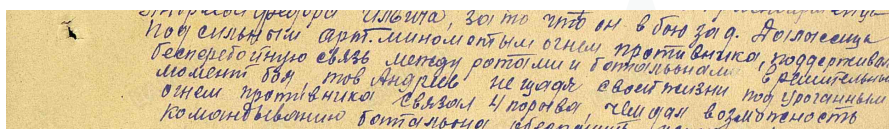 Федора Ильича, за то что он в бою за д.
Под сильным арт. минометным огнем противника, поддерживал
бесперебойную связь между ротами и баттальонами, в решительный
момент боя тов Андреев не щадя своей жизни под ураганным
огнем противника связал 4 порыва, чем дал возможность
командыванию баттальона